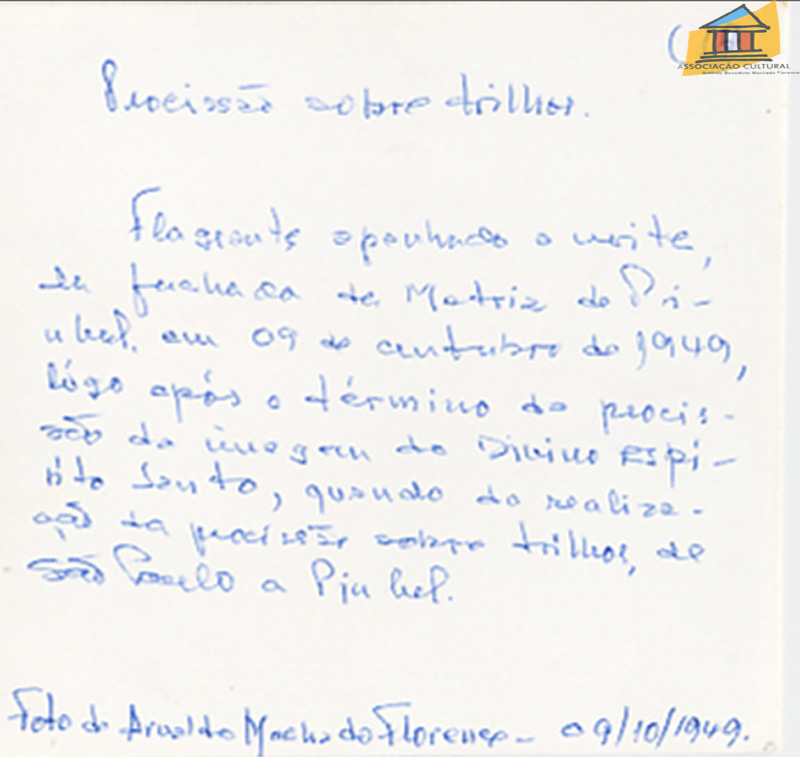 ASSOCIAÇÃO CULTURAL
Procissão sobre trilhos.
Flagrante apanhado a noite,
da fachada da Matriz de Pi-
nhal, em 09 de outubro de 1949,
lógo após o término da procis-
são da imagem do Divino Espí-
rito Santo, quando da realiza-
ção da procissão sobre trilhos, de
São Paulo a Pinhal.
Foto de Arnaldo Machado Florence - 09/10/1949.